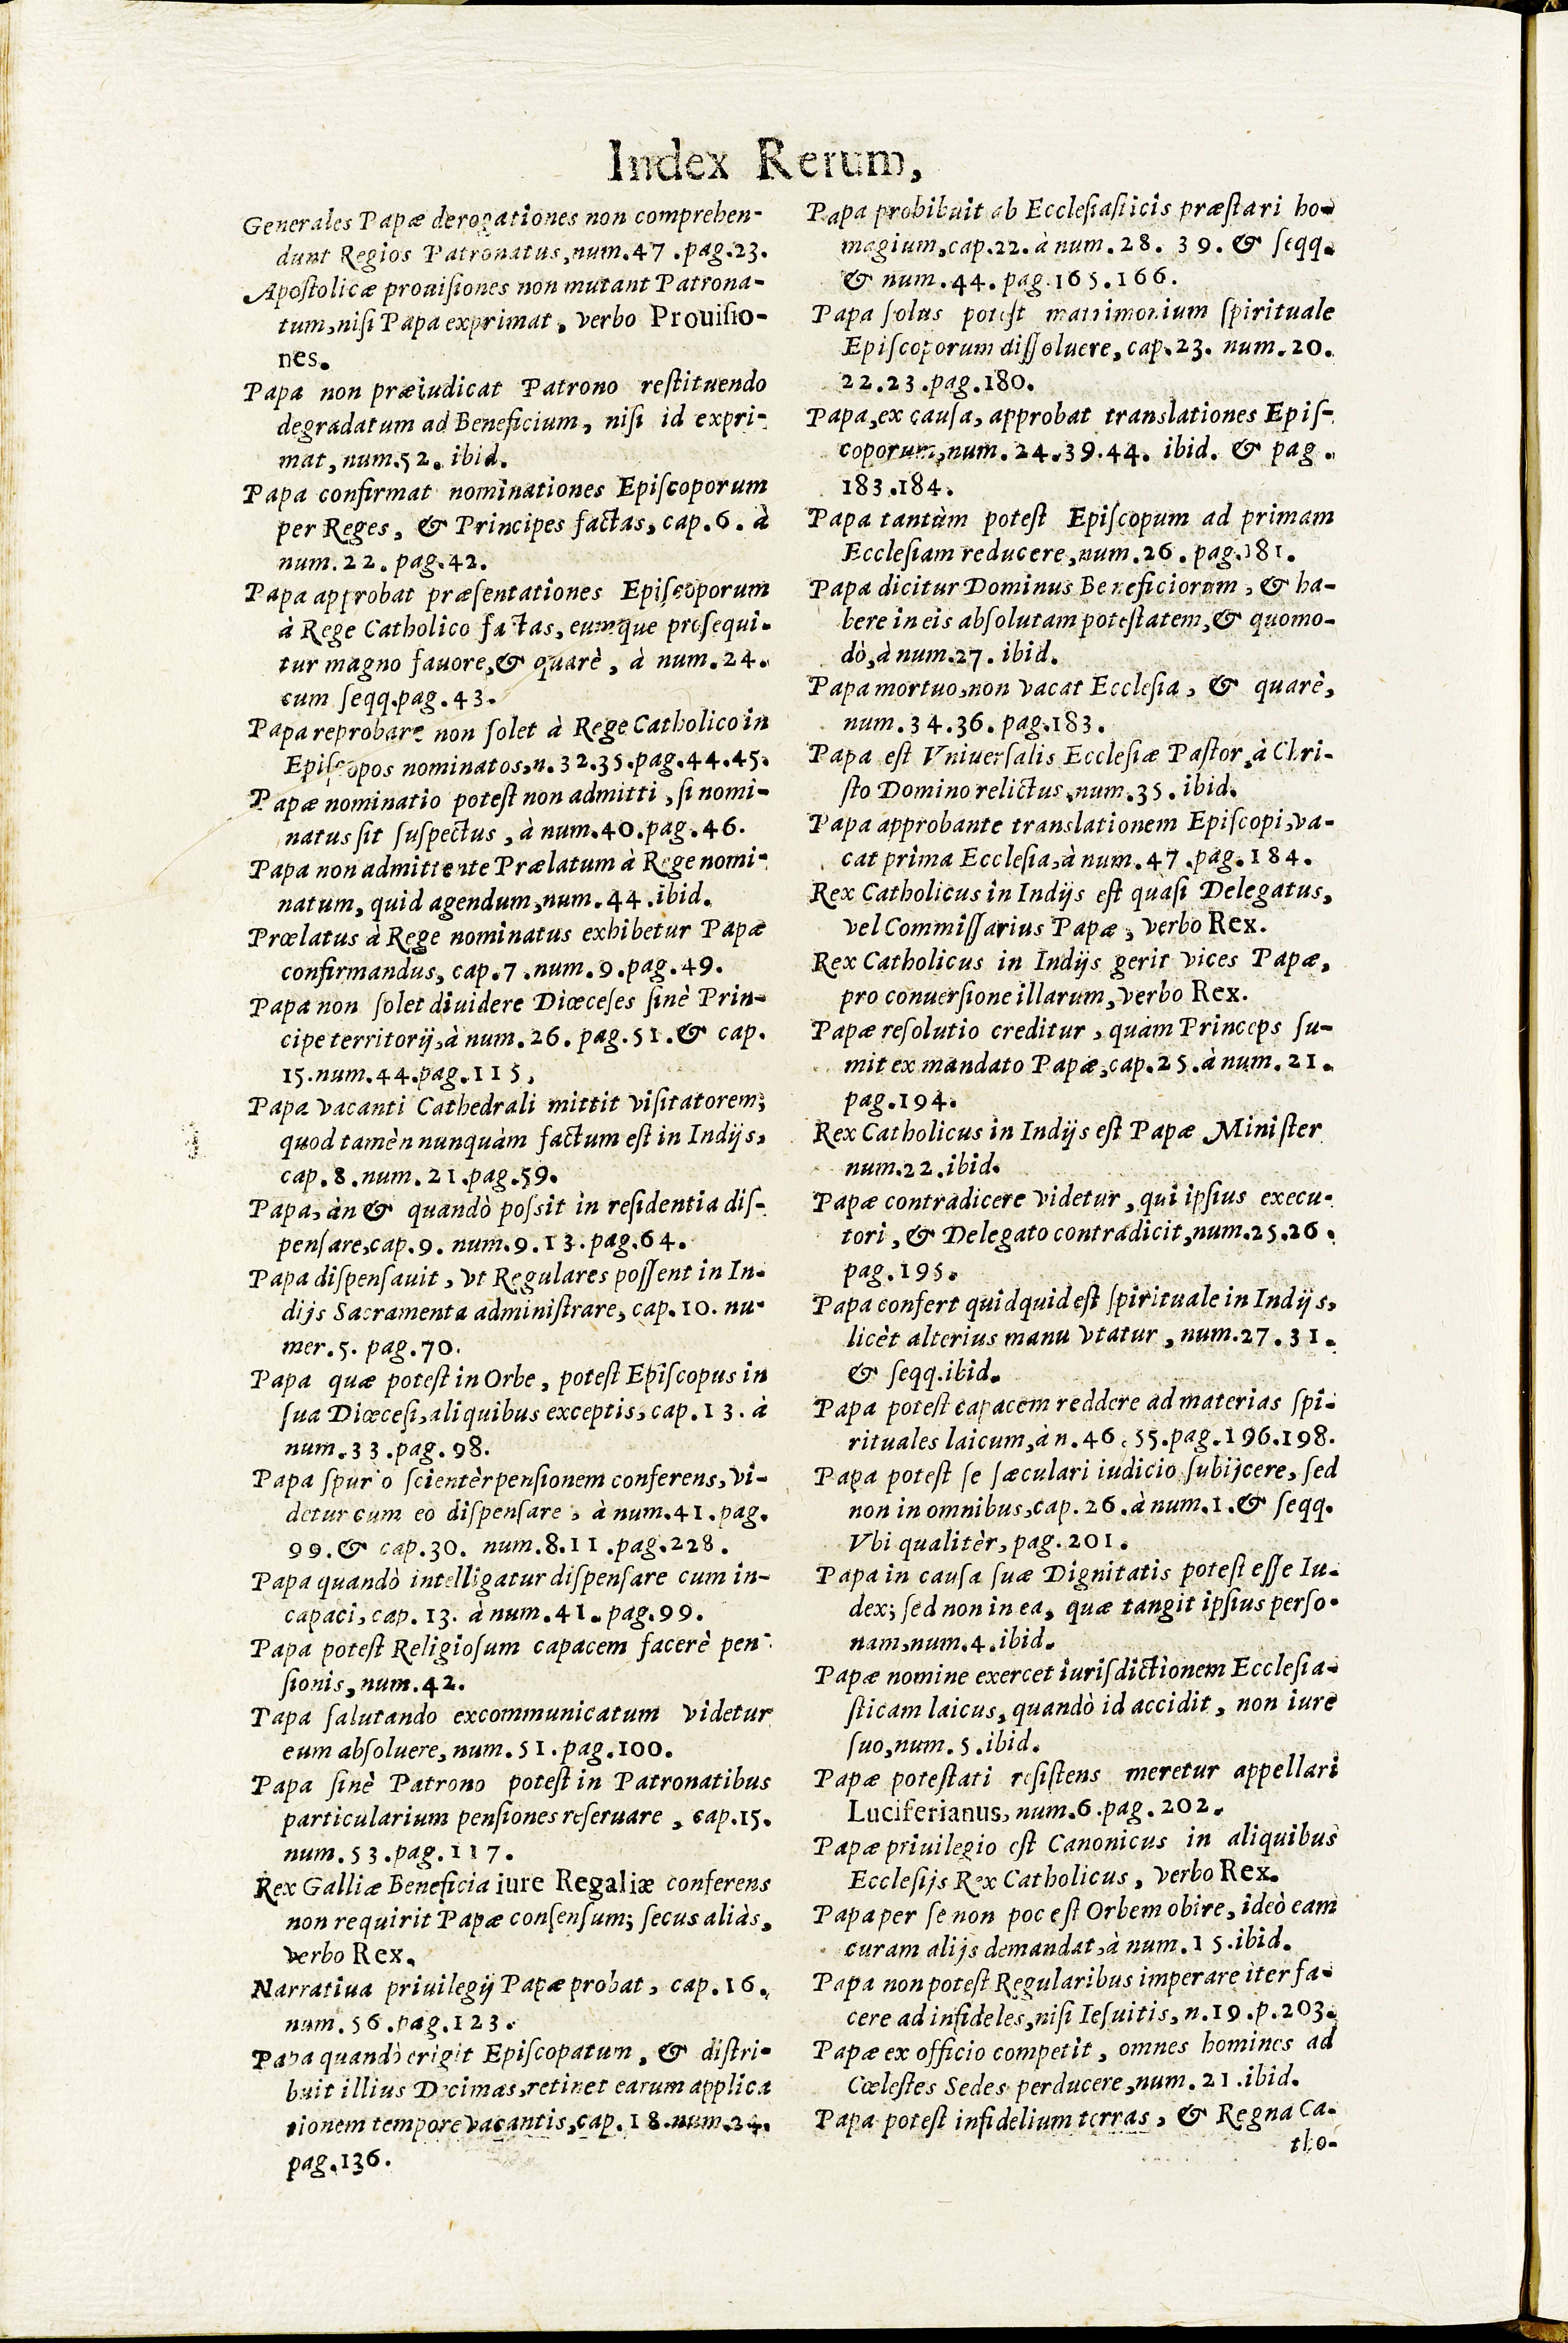 Index Rerum,
Generales Papæ derogationes non comprehen-
dunt Regios Patronatus, num.47.pag.23.
Apoſtolicæ prouiſiones non mutant Patrona-
tum, niſi Papa exprimat, verbo Prouiſio-
nes.
Papa non præiudicat Patrono reſtituendo
degradatum ad Beneficium, niſi id expri-
mat, num.52. ibid.
Papa confirmat nominationes Epiſcoporum
per Reges, & Principes factas, cap.6. à
num.22. pag.42.
Papa approbat præſentationes Epiſcoporum
à Rege Catholico factas, eumque proſequi-
tur magno fauore, & quarè, à num.24.
cum ſeqq.pag.43.
Papa reprobare non ſolet à Rege Catholico in
Epiſcopos nominatos, n.32.35.pag.44.45.
Papæ nominatio poteſt non admitti, ſi nomi-
natus ſit ſuſpectus, à num.40.pag.46.
Papa non admittente Prælatum à Rege nomi-
natum, quid agendum, num.44.ibid.
Prœlatus à Rege nominatus exhibetur Papæ
confirmandus, cap.7.num.9.pag.49.
Papa non ſolet diuidere Diœceſes ſinè Prin-
cipe territorij, à num.26. pag.51. & cap.
15.num.44.pag.115,
Papa vacanti Cathedrali mittit viſitatorem;
quod tamèn nunquàm factum eſt in Indijs,
cap.8.num.21.pag.59.
Papa, àn & quandò poſsit in reſidentia diſ-
penſare, cap.9. num.9.13.pag.64.
Papa diſpenſauit, vt Regulares poſſent in In-
dijs Sacramenta adminiſtrare, cap.10. nu-
mer.5. pag.70.
Papa quæ poteſt in Orbe, poteſt Epiſcopus in
ſua Diœceſi, aliquibus exceptis, cap.13. à
num.33.pag.98.
Papa ſpur o ſcientèr penſionem conferens, vi-
detur cum eo diſpenſare, à num.41.pag.
99.& cap.30. num.8.11.pag.228.
Papa quandò intelligatur diſpenſare cum in-
capaci, cap.13. à num.41.pag.99.
Papa poteſt Religioſum capacem facerè pen-
ſionis, num.42.
Papa ſalutando excommunicatum videtur
eum abſoluere, num.51.pag.100.
Papa ſinè Patrono poteſt in Patronatibus
particularium penſiones reſeruare, cap.15.
num.53.pag.117.
Rex Galliæ Beneficia iure Regaliæ conferens
non requirit Papæ conſenſum; ſecus aliàs,
verbo Rex.
Narratiua priuilegij Papæ probat, cap.16.
num.56.pag.123.
Papa quandò erigit Epiſcopatum, & diſtri-
buit illius Decimas, retinet earum applica
tionem tempore vacantis, cap.18.num.34.
pag.136.
Papa prohibuit ab Eccleſiaſticis præſtari ho-
magium, cap.22. à num.28. 39. & ſeqq.
& num.44. pag.165.166.
Papa ſolus poteſt matrimonium ſpirituale
Epiſcoporum diſſoluere, cap.23. num.20.
22.23.pag.180.
Papa, ex cauſa, approbat translationes Epiſ-
coporum, num.24.39.44. ibid. & pag.
183.184.
Papa tantùm poteſt Epiſcopum ad primam
Eccleſiam reducere, num.26. pag.181.
Papa dicitur Dominus Beneficiorum, & ha-
bere in eis abſolutam poteſtatem, & quomo-
dò, à num.27. ibid.
Papa mortuo, non vacat Eccleſia, & quarè,
num.34.36. pag.183.
Papa eſt Vniuerſalis Eccleſiæ Paſtor, à Chri-
ſto Domino relictus, num.35. ibid.
Papa approbante translationem Epiſcopi, va-
cat prima Eccleſia, à num.47.pag.184.
Rex Catholicus in Indijs eſt quaſi Delegatus,
vel Commiſſarius Papæ, verbo Rex.
Rex Catholicus in Indijs gerit vices Papæ,
pro conuerſione illarum, verbo Rex.
Papæ reſolutio creditur, quam Princeps ſu-
mit ex mandato Papæ, cap.25. à num.21.
pag.194.
Rex Catholicus in Indijs eſt Papæ Miniſter
num.22.ibid.
Papæ contradicere videtur, qui ipſius execu-
tori, & Delegato contradicit, num.25.26.
pag.195.
Papa confert quidquid eſt ſpirituale in Indijs,
licèt alterius manu vtatur, num.27.31.
& ſeqq.ibid.
Papa poteſt capacem reddere ad materias ſpi-
rituales laicum, à n.46.55.pag.196.198.
Papa poteſt ſe ſæculari iudicio ſubijcere, ſed
non in omnibus, cap.26. à num.1.& ſeqq.
Vbi qualitèr, pag.201.
Papa in cauſa ſuæ Dignitatis poteſt eſſe Iu-
dex; ſed non in ea, quæ tangit ipſius perſo-
nam, num.4.ibid.
Papæ nomine exercet iuriſdictionem Eccleſia-
ſticam laicus, quandò id accidit, non iure
ſuo, num.5.ibid.
Papæ poteſtati reſiſtens meretur appellari
Luciferianus, num.6.pag.202.
Papæ priuilegio eſt Canonicus in aliquibus
Eccleſijs Rex Catholicus, verbo Rex.
Papa per ſe non poteſt Orbem obire, ideò eam
curam alijs demandat, à num.15.ibid.
Papa non poteſt Regularibus imperare iter fa-
cere ad infideles, niſi Ieſuitis, n.19.p.203.
Papæ ex officio competit, omnes homines ad
Cœleſtes Sedes perducere, num.21.ibid.
Papa poteſt infidelium terras, & Regna Ca-
tho-